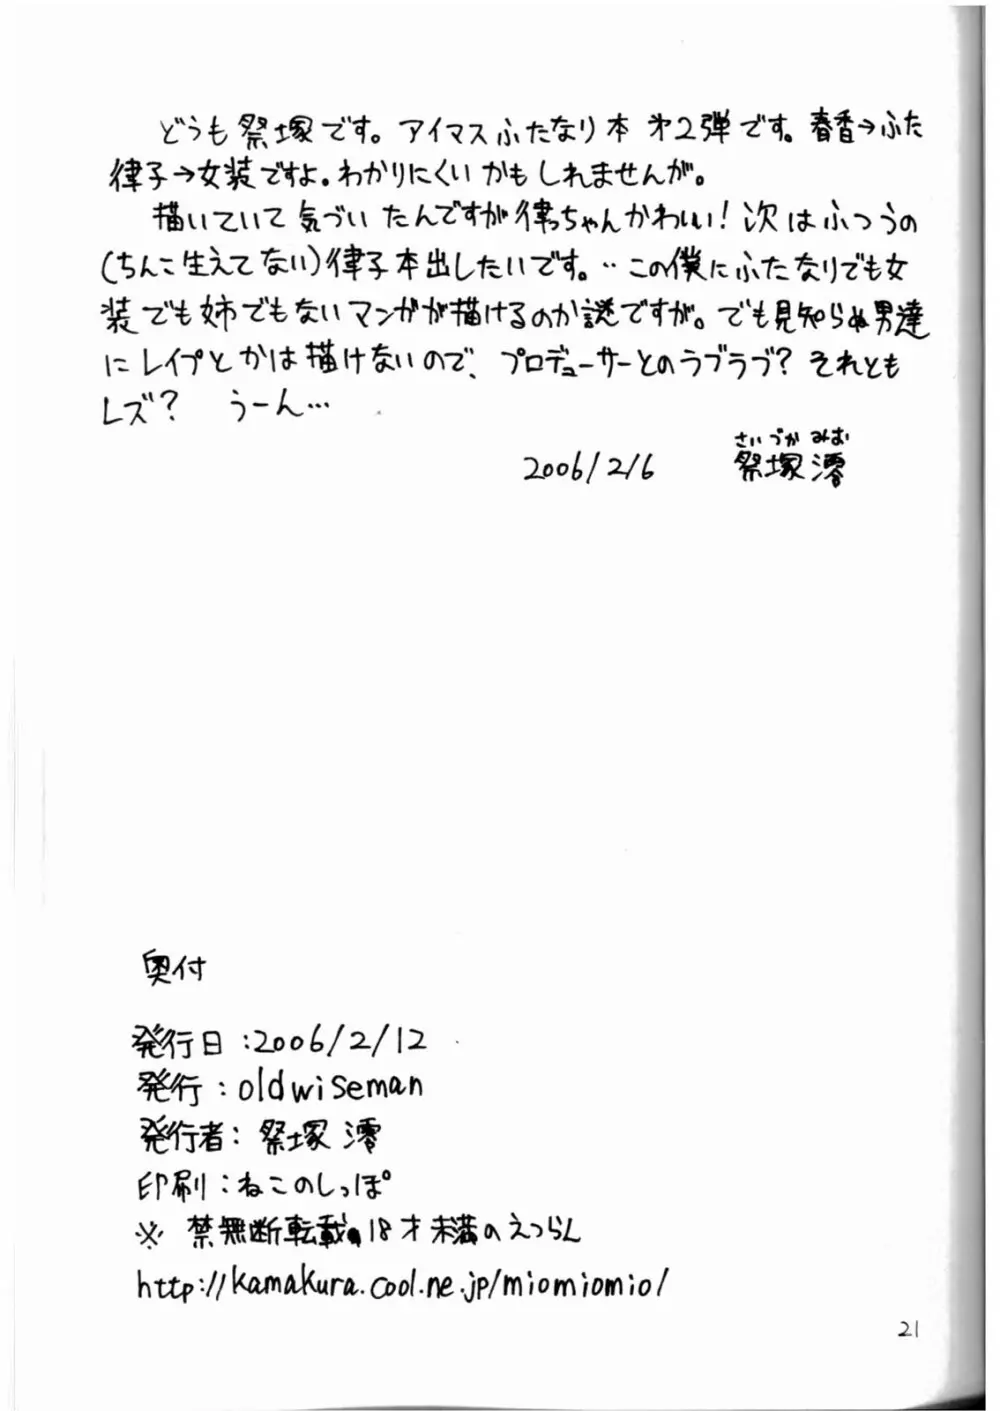 どうも祭塚です。アイマスふたなり本 才2弾です。春香→ふた
律子→女装ですよ。わかりにくいかもしれませんが。
描いていて気づいたんですが律っちゃんかわいい！次はふつうの
(ちんこ生えてない)律子本出したいです。‥この僕にふたなりでも女
装でも姉でもないマンガが描けるのか謎ですが。でも見知らぬ男達
にレイプとかは描けないので、プロデューサーとのラブラブ？それとも
レズ？ うーん…
さいづかみお
2006/2/6 祭塚澪
奥付
発行日：2006/2/12
発行：oldwiseman
発行者：祭塚澪
印刷：ねこのしっぽ
※ 禁無断転載、18才未満のえつらん
http://kamakura.cool.ne.jp/miomiomio/
21